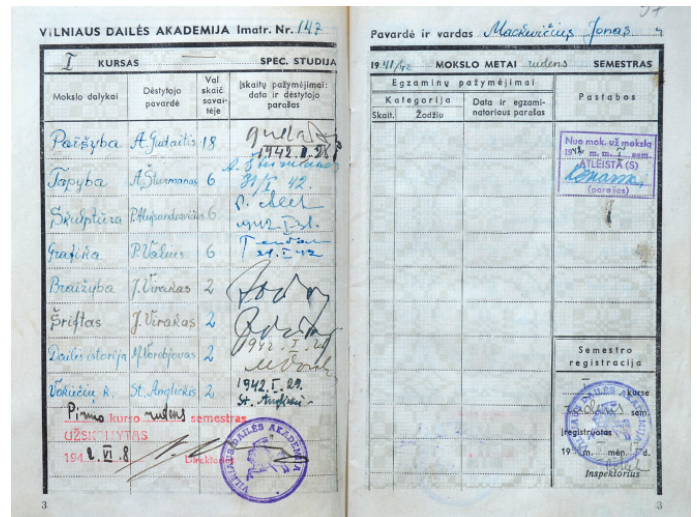 VILNIAUS DAILĖS AKADEMIJA Imatr. Nr. 147
I KURSAS SPEC. STUDIJA
Mokslo dalykai Dėstytojo pavardė Val. skaič. savaitėje Įskaitų pažymėjimai: data ir dėstytojo parašas
Paišyba A. Gudaitis 18
1942.
Tapyba A. Šturmanas 6
31/I 42.
Skulptūra P. Aleksandravičius 6
1942
Grafika P. Valius 6
Braižyba J. Virakas 2
Šriftas J. Virakas 2
Dailės istorija M. Vorobjovas 2
1942. I.
Vokiečių k. St. Anglickis 2 1942. I. 29.
St.
Pirmo kurso rudens semestras
UŽSKAITYTAS
1942. VI. 8
Direktorius
VILNIAUS DAILĖS AKADEMIJA
3
Pavardė ir vardas Mackevičius Jonas
1941/42 MOKSLO METAI rudens SEMESTRAS
Egzaminų pažymėjimai
Kategorija
Skait. Žodžiu
Data ir egzaminatoriaus parašas
Pastabos
Nuo mok. už mokslą
1942 m. m. I sem.
ATLEISTA (S)
(parašas)
Semestro registracija
kurse
sem.
įregistruotas
19 m. mėn. d.
Inspektorius
VILNIAUS DAILĖS AKADEMIJA
3